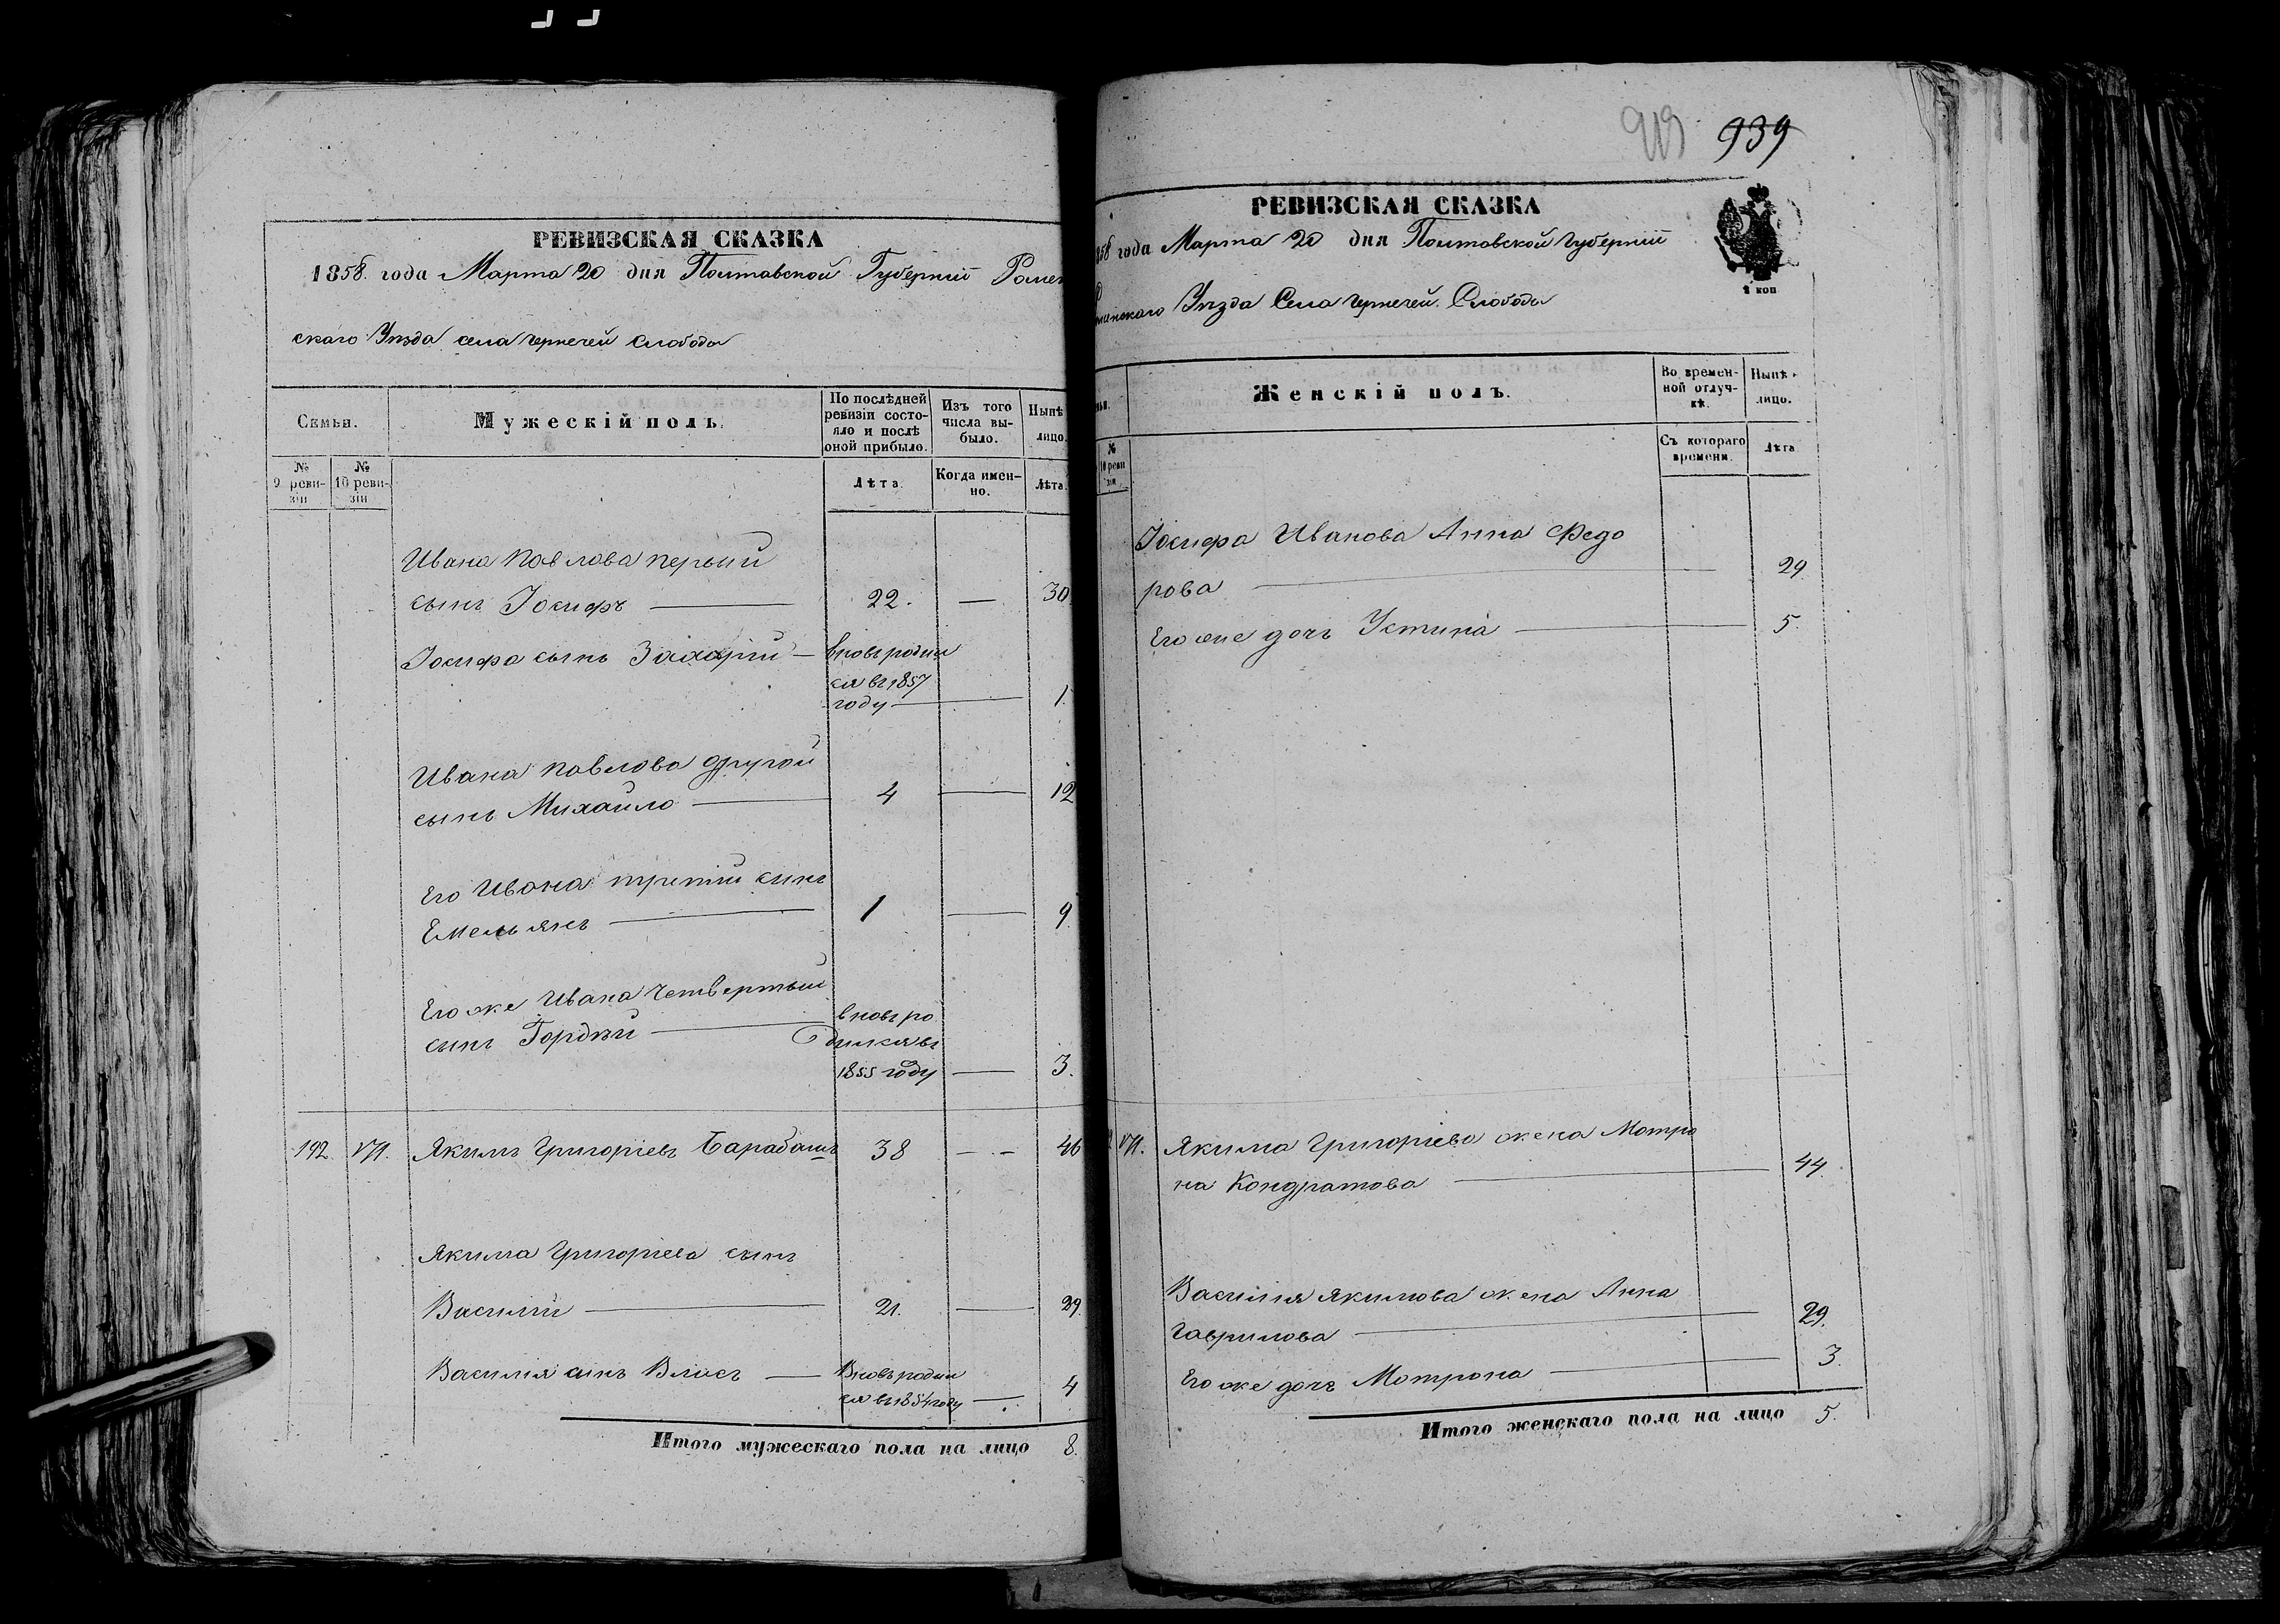 РЕВИЗСКАЯ СКАЗКА
1858 года Марта 20 дня Полтавской Губерніи Ромен
скаго Уѣзда села Чернечей Слободы
Семьи.
Мужескій полъ.
По послѣдней ревизіи состояло и послѣ оной прибыло.
Изъ того числа выбыло.
Нынѣ лицо.
№ 9 ревизіи
№ 10 ревизіи
Лѣта.
Когда именно.
Лѣта.
Ивана Павлова первый
сынъ Іосифъ 22. — 30.
Іосифа сынъ Захарій — вновь родил
ся въ 1857
году — 1.
Ивана Павлова другой
сынъ Михайло 4 — 12
Его Ивана третій сынъ
Емельянъ 1 — 9.
Его же Ивана четвертый
сынъ Гордѣй — вновь ро
дился въ
1855 году — 3.
192. Якимъ Григоріевъ Барабашъ 38 — 46
Якима Григоріева сынъ
Василій 21. — 29.
Василія сынъ Власъ — Вновь родил
ся въ 1854 году — 4
Итого мужескаго пола на лицо 8.
939
РЕВИЗСКАЯ СКАЗКА
858 года Марта 20 дня Полтавской Губерніи
менскаго Уѣзда Села Чернечей Слободы
2 коп
Женскій полъ.
Во временной отлучкѣ.
Нынѣ лицо.
№ 10 реви зіи
Съ котораго времени.
Лѣта
Іосифа Иванова Анна Федо
рова — 29
Его же дочь Устина — 5.
Якима Григоріева жена Мотро
на Кондратова — 44.
Василія Якимова жена Анна
Гаврилова — 29.
Его же дочь Мотрона — 3.
Итого женскаго пола на лицо 5.